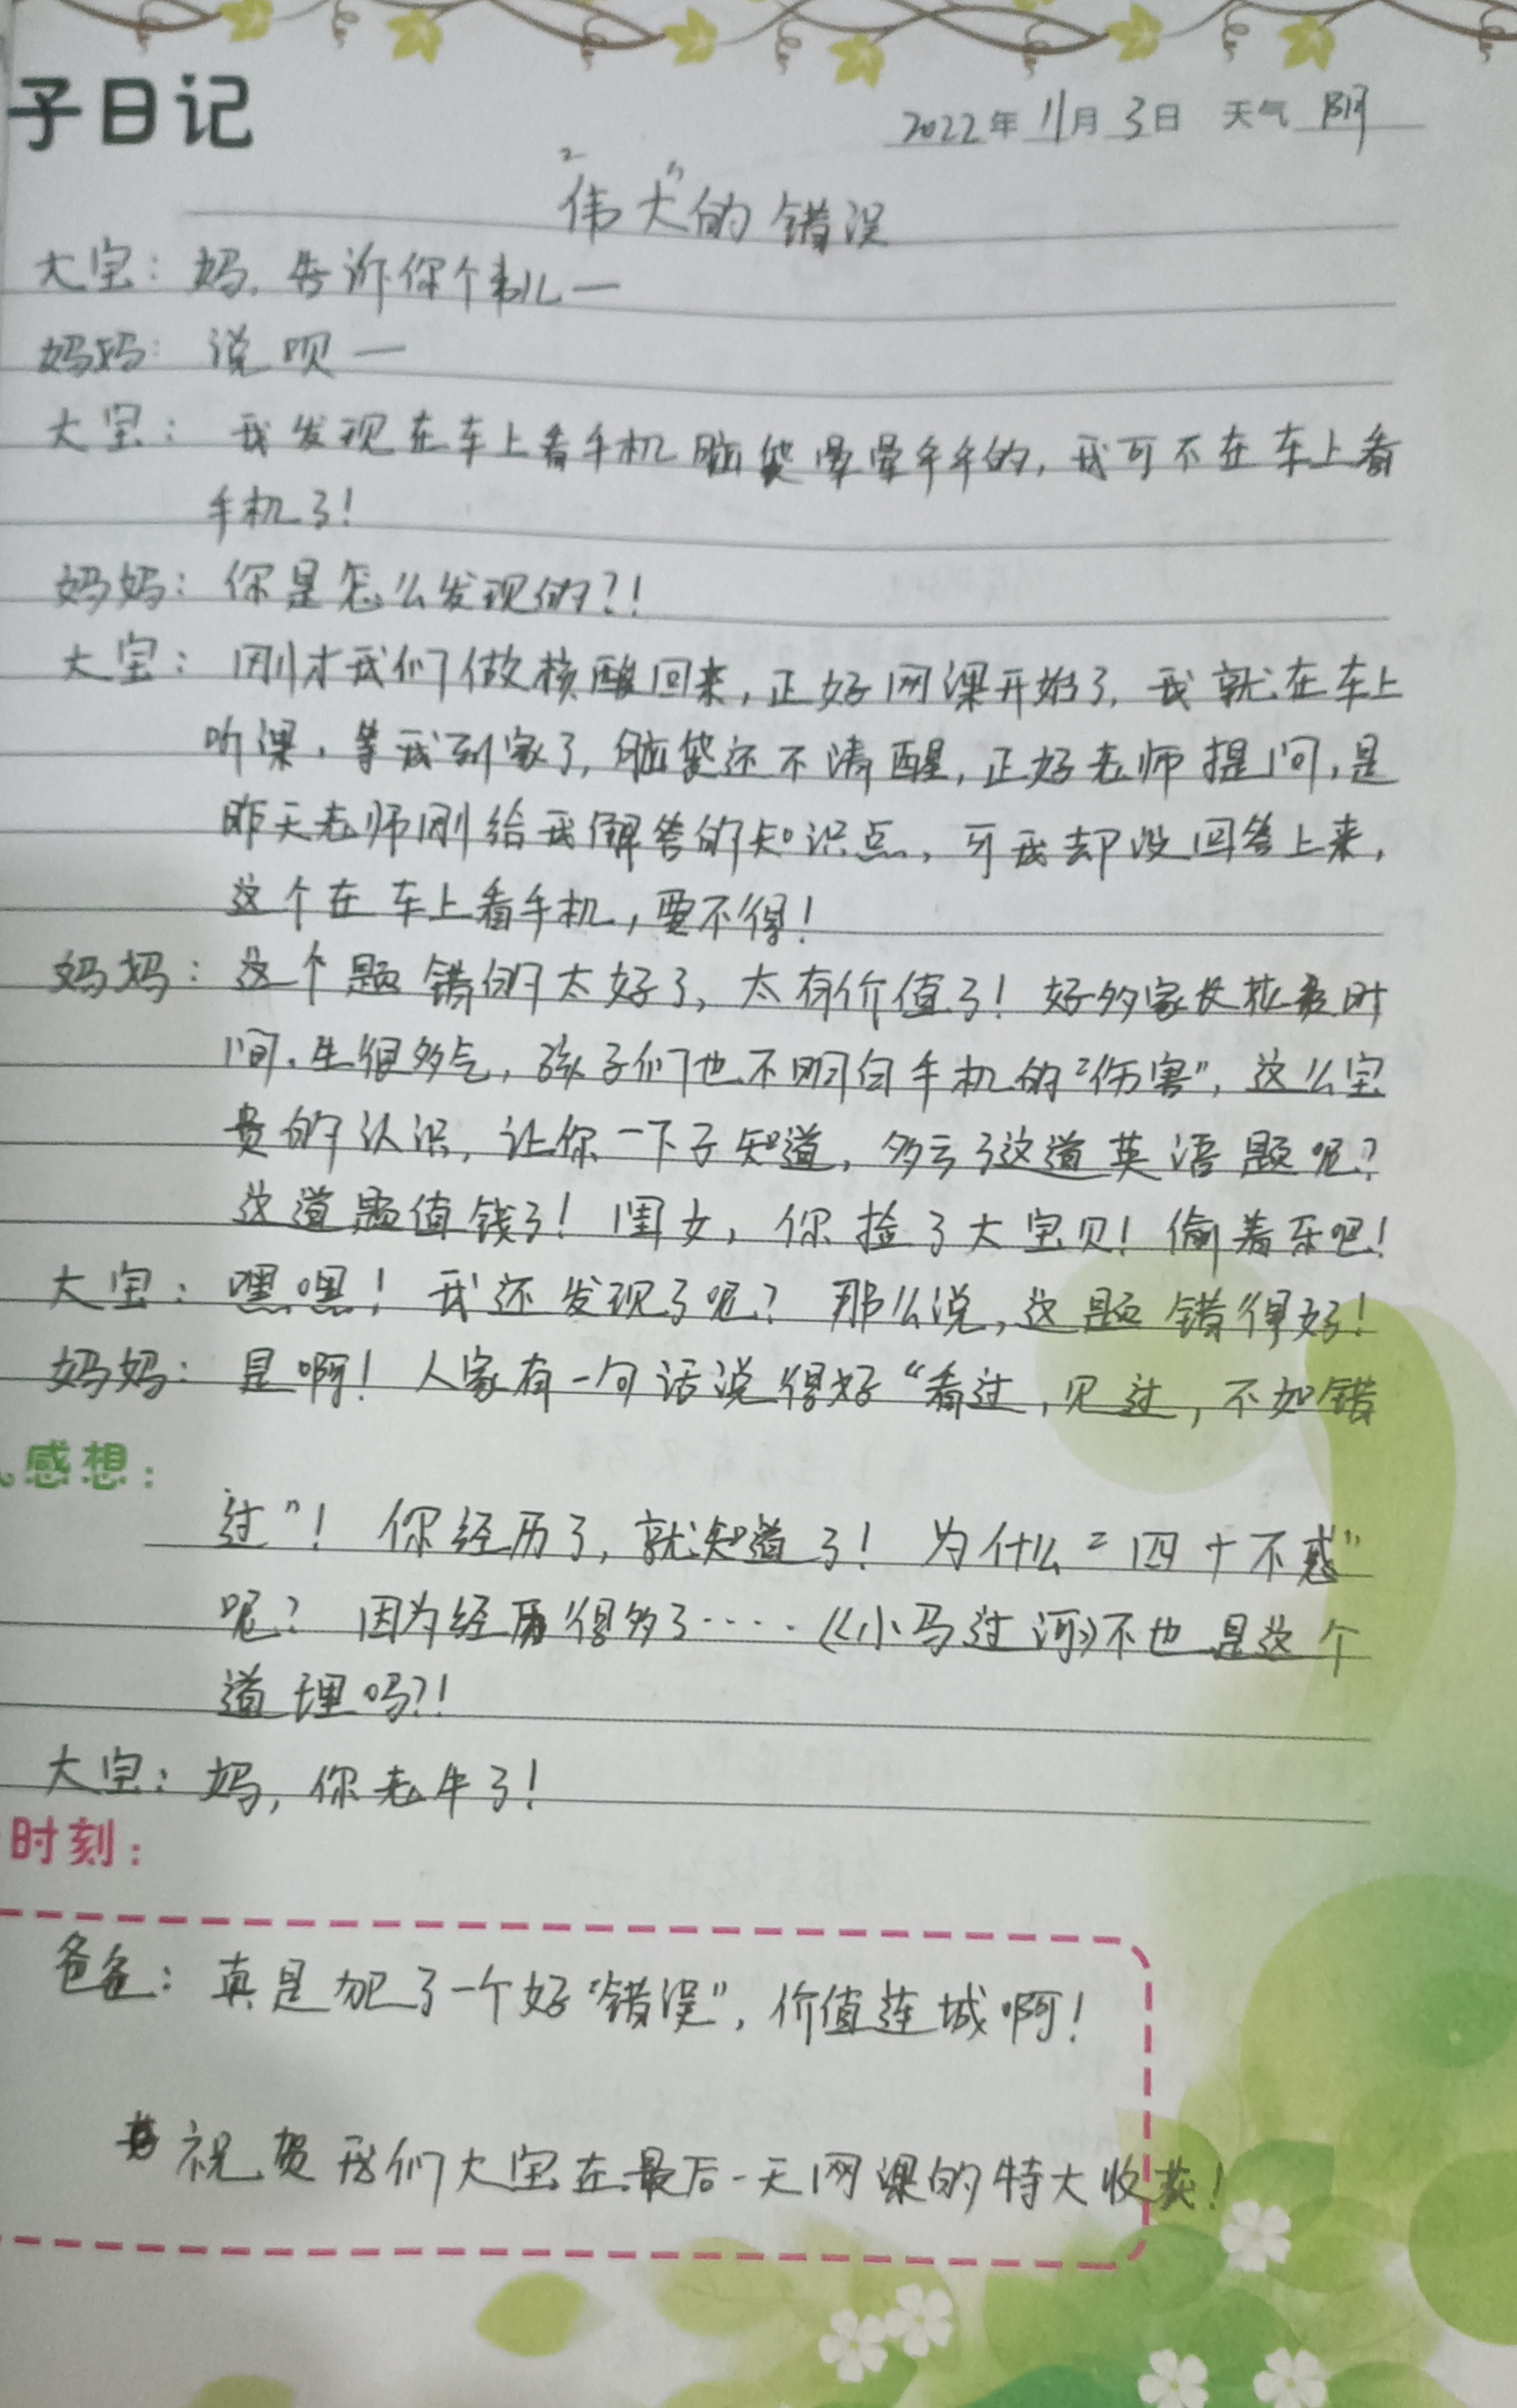 子日记
2022年 11月 3日 天气 阴
“伟大”的错误
大宝：妈，告诉你个事儿一
妈妈：说呗一
大宝：我发现在车上看手机脑袋晕晕乎乎的，我可不在车上看
手机了！
妈妈：你是怎么发现的？！
大宝：刚才我们做核酸回来，正好网课开始了，我就在车上
听课，等我到家了，脑袋还不清醒，正好老师提问，是
昨天老师刚给我解答的知识点，可我却没回答上来，
这个在车上看手机，要不得！
妈妈：这个题错的太好了，太有价值了！好多家长花老时
间，生很多气，孩子们也不明白手机的“伤害”，这么宝
贵的认识，让你一下子知道，多亏了这道英语题呢？
这道题值钱了！闺女，你捡了大宝贝！偷着乐吧！
大宝：嘿嘿！我还发现了呢？那么说，这题错得好！
妈妈：是啊！人家有一句话说得好“看过，见过，不如错
感想：
过”！你经历了，就知道了！为什么“四十不惑”
呢？因为经历得多了……《小马过河》不也是这个
道理吗？！
大宝：妈，你老牛了！
时刻：
爸爸：真是犯了一个好“错误”，价值连城啊！
祝贺我们大宝在最后一天网课的特大收获！